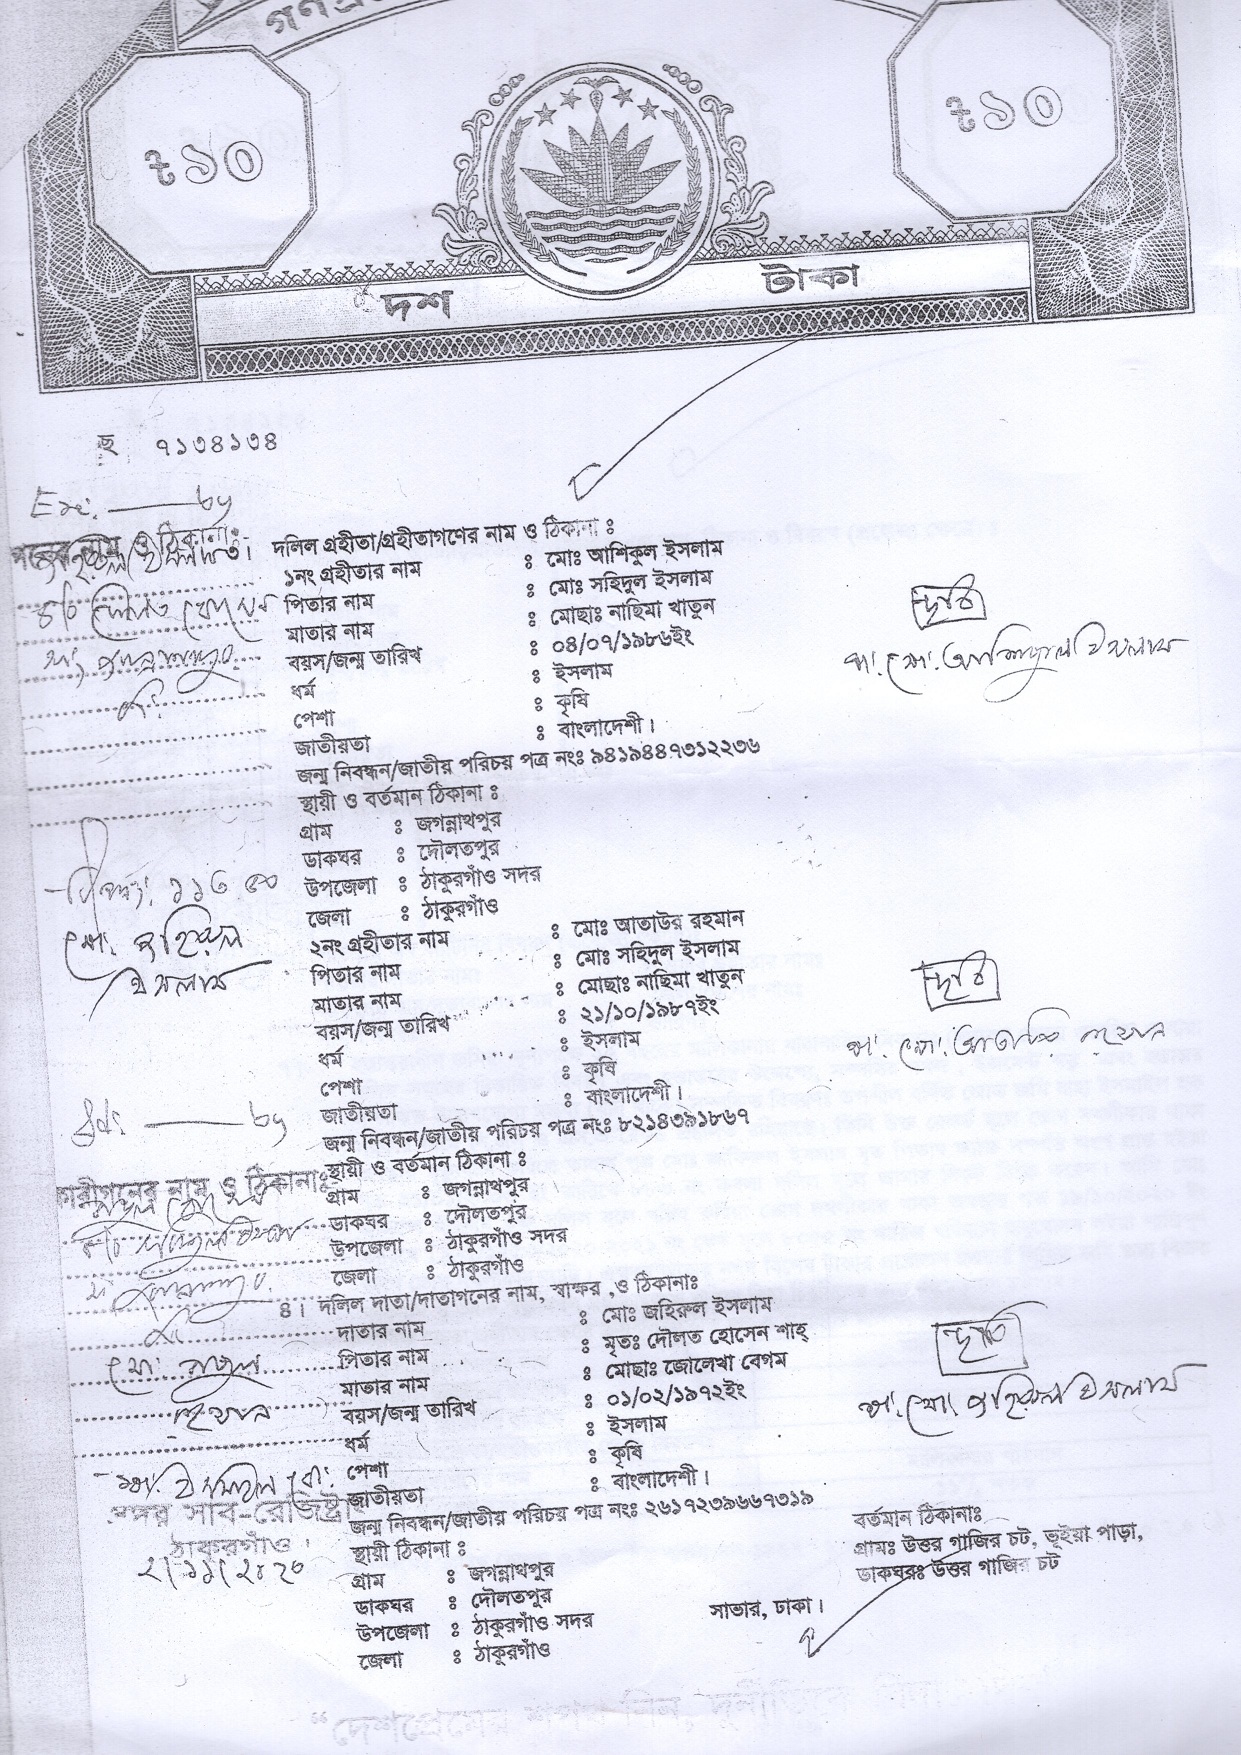 ৳১০
৳১০
দশ টাকা
ছ ৭১৩৪১৩৪
Exe. by
৩। দলিল গ্রহীতা/গ্রহীতাগণের নাম ও ঠিকানা ঃ
১নং গ্রহীতার নাম ঃ মোঃ আশিকুল ইসলাম
পিতার নাম ঃ মোঃ সহিদুল ইসলাম
মাতার নাম ঃ মোছাঃ নাছিমা খাতুন
বয়স/জন্ম তারিখ ঃ ০৪/০৭/১৯৮৬ইং
ধর্ম ঃ ইসলাম
পেশা ঃ কৃষি
জাতীয়তা ঃ বাংলাদেশী।
জন্ম নিবন্ধন/জাতীয় পরিচয় পত্র নংঃ ৯৪১৯৪৪৭৩১২২৩৬
স্থায়ী ও বর্তমান ঠিকানা ঃ
গ্রাম ঃ জগন্নাথপুর
ডাকঘর ঃ দৌলতপুর
উপজেলা ঃ ঠাকুরগাঁও সদর
জেলা ঃ ঠাকুরগাঁও
ছবি
স্বা. মো. আশিকুল ইসলাম
মো. জহিরুল
ইসলাম
২নং গ্রহীতার নাম ঃ মোঃ আতাউর রহমান
পিতার নাম ঃ মোঃ সহিদুল ইসলাম
মাতার নাম ঃ মোছাঃ নাছিমা খাতুন
বয়স/জন্ম তারিখ ঃ ২১/১০/১৯৮৭ইং
ধর্ম ঃ ইসলাম
পেশা ঃ কৃষি
জাতীয়তা ঃ বাংলাদেশী।
জন্ম নিবন্ধন/জাতীয় পরিচয় পত্র নংঃ ৮২১৪৩৯১৮৬৭
স্থায়ী ও বর্তমান ঠিকানা ঃ
গ্রাম ঃ জগন্নাথপুর
ডাকঘর ঃ দৌলতপুর
উপজেলা ঃ ঠাকুরগাঁও সদর
জেলা ঃ ঠাকুরগাঁও
ছবি
স্বা. মো. আতাউর রহমান
by
নাম ও ঠিকানাঃ
৪। দলিল দাতা/দাতাগনের নাম, স্বাক্ষর ,ও ঠিকানাঃ
দাতার নাম ঃ মোঃ জহিরুল ইসলাম
পিতার নাম ঃ মৃতঃ দৌলত হোসেন শাহ্
মাতার নাম ঃ মোছাঃ জোলেখা বেগম
বয়স/জন্ম তারিখ ঃ ০১/০২/১৯৭২ইং
ধর্ম ঃ ইসলাম
পেশা ঃ কৃষি
জাতীয়তা ঃ বাংলাদেশী।
জন্ম নিবন্ধন/জাতীয় পরিচয় পত্র নংঃ ২৬১৭২৩৯৬৬৭৩১৯
স্থায়ী ঠিকানা ঃ
গ্রাম ঃ জগন্নাথপুর
ডাকঘর ঃ দৌলতপুর
উপজেলা ঃ ঠাকুরগাঁও সদর
জেলা ঃ ঠাকুরগাঁও
ছবি
স্বা. মো. জহিরুল ইসলাম
বর্তমান ঠিকানাঃ
গ্রামঃ উত্তর গাজির চট, ভূইয়া পাড়া,
ডাকঘরঃ উত্তর গাজির চট
সাভার, ঢাকা।
সদর সাব-রেজিষ্ট্রার
ঠাকুরগাঁও
“দেশপ্রেমের শপথ নিন, দুর্নীতিকে